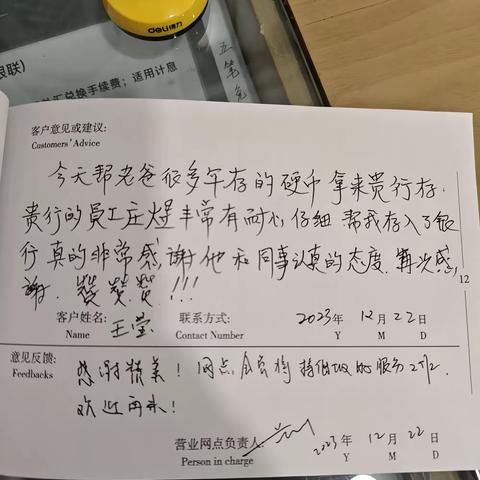 deli得力
银联)
汇兑换手续费；适用计息
五笔免
客户意见或建议:
Customers' Advice
今天帮老爸很多年存的硬币拿来贵行存.
贵行的员工庄煜丰常有耐心仔细帮我存入了银
行真的非常感谢他和同事认真的态度.再次感
谢.赞赞赞!!!
12
客户姓名: 王莹 联系方式: 2023年 12月 22日
Name Contact Number Y M D
意见反馈: 感谢 ! 网点 的服务
Feedbacks
欢迎再来!
营业网点负责人: 2023年 12月 22日
Person in charge Y M D